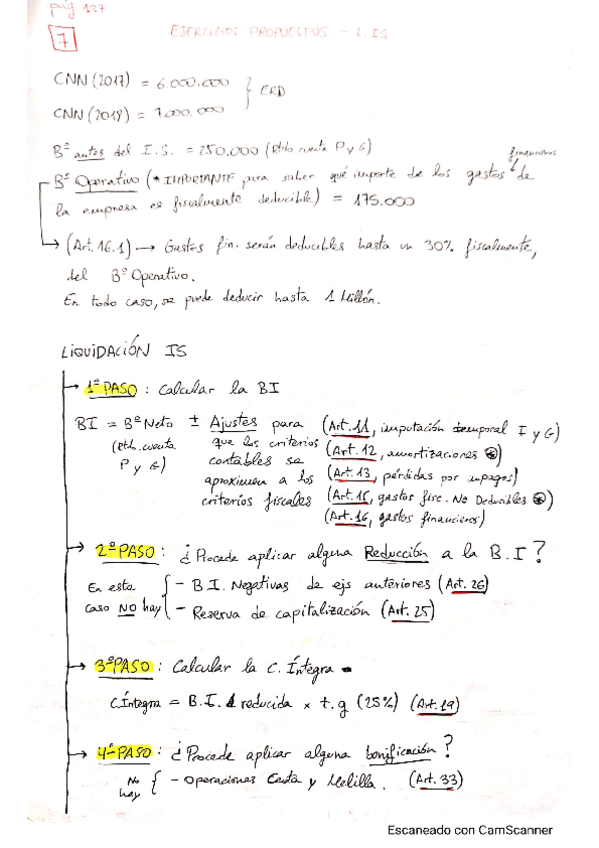 pág 127
7
EJERCICIOS PROPUESTOS - L.IS
CNN (2017) = 6.000.000
CNN (2018) = 7.000.000
} ERD
Bº antes del I.S. = 250.000 (Rtdo cuenta P y G)
financieros
Bº Operativo (* IMPORTANTE para saber qué importe de los gastos de
la empresa es fiscalmente deducible) = 175.000
(Art. 16.1) → Gastos fin. serán deducibles hasta un 30% fiscalmente,
del Bº Operativo.
En todo caso, se puede deducir hasta 1 Millón.
LIQUIDACIÓN IS
1º PASO : Calcular la BI
BI = Bº Neto ± Ajustes para (Art. 11, imputación temporal I y G)
(Rtdo. cuenta que los criterios (Art. 12, amortizaciones)
P y G) contables se (Art. 13, pérdidas por impagos)
aproximen a los (Art. 15, gastos fisc. No Deducibles)
criterios fiscales (Art. 16, gastos financieros)
2º PASO : ¿Procede aplicar alguna Reducción a la B.I?
En este - B.I. Negativas de ejs anteriores (Art. 26)
caso NO hay - Reserva de capitalización (Art. 25)
3º PASO : Calcular la C. Íntegra
C.Íntegra = B.I. reducida x t.g (25%) (Art. 29)
4º PASO : ¿Procede aplicar alguna bonificación?
No hay { - Operaciones Ceuta y Melilla. (Art. 33)
Escaneado con CamScanner